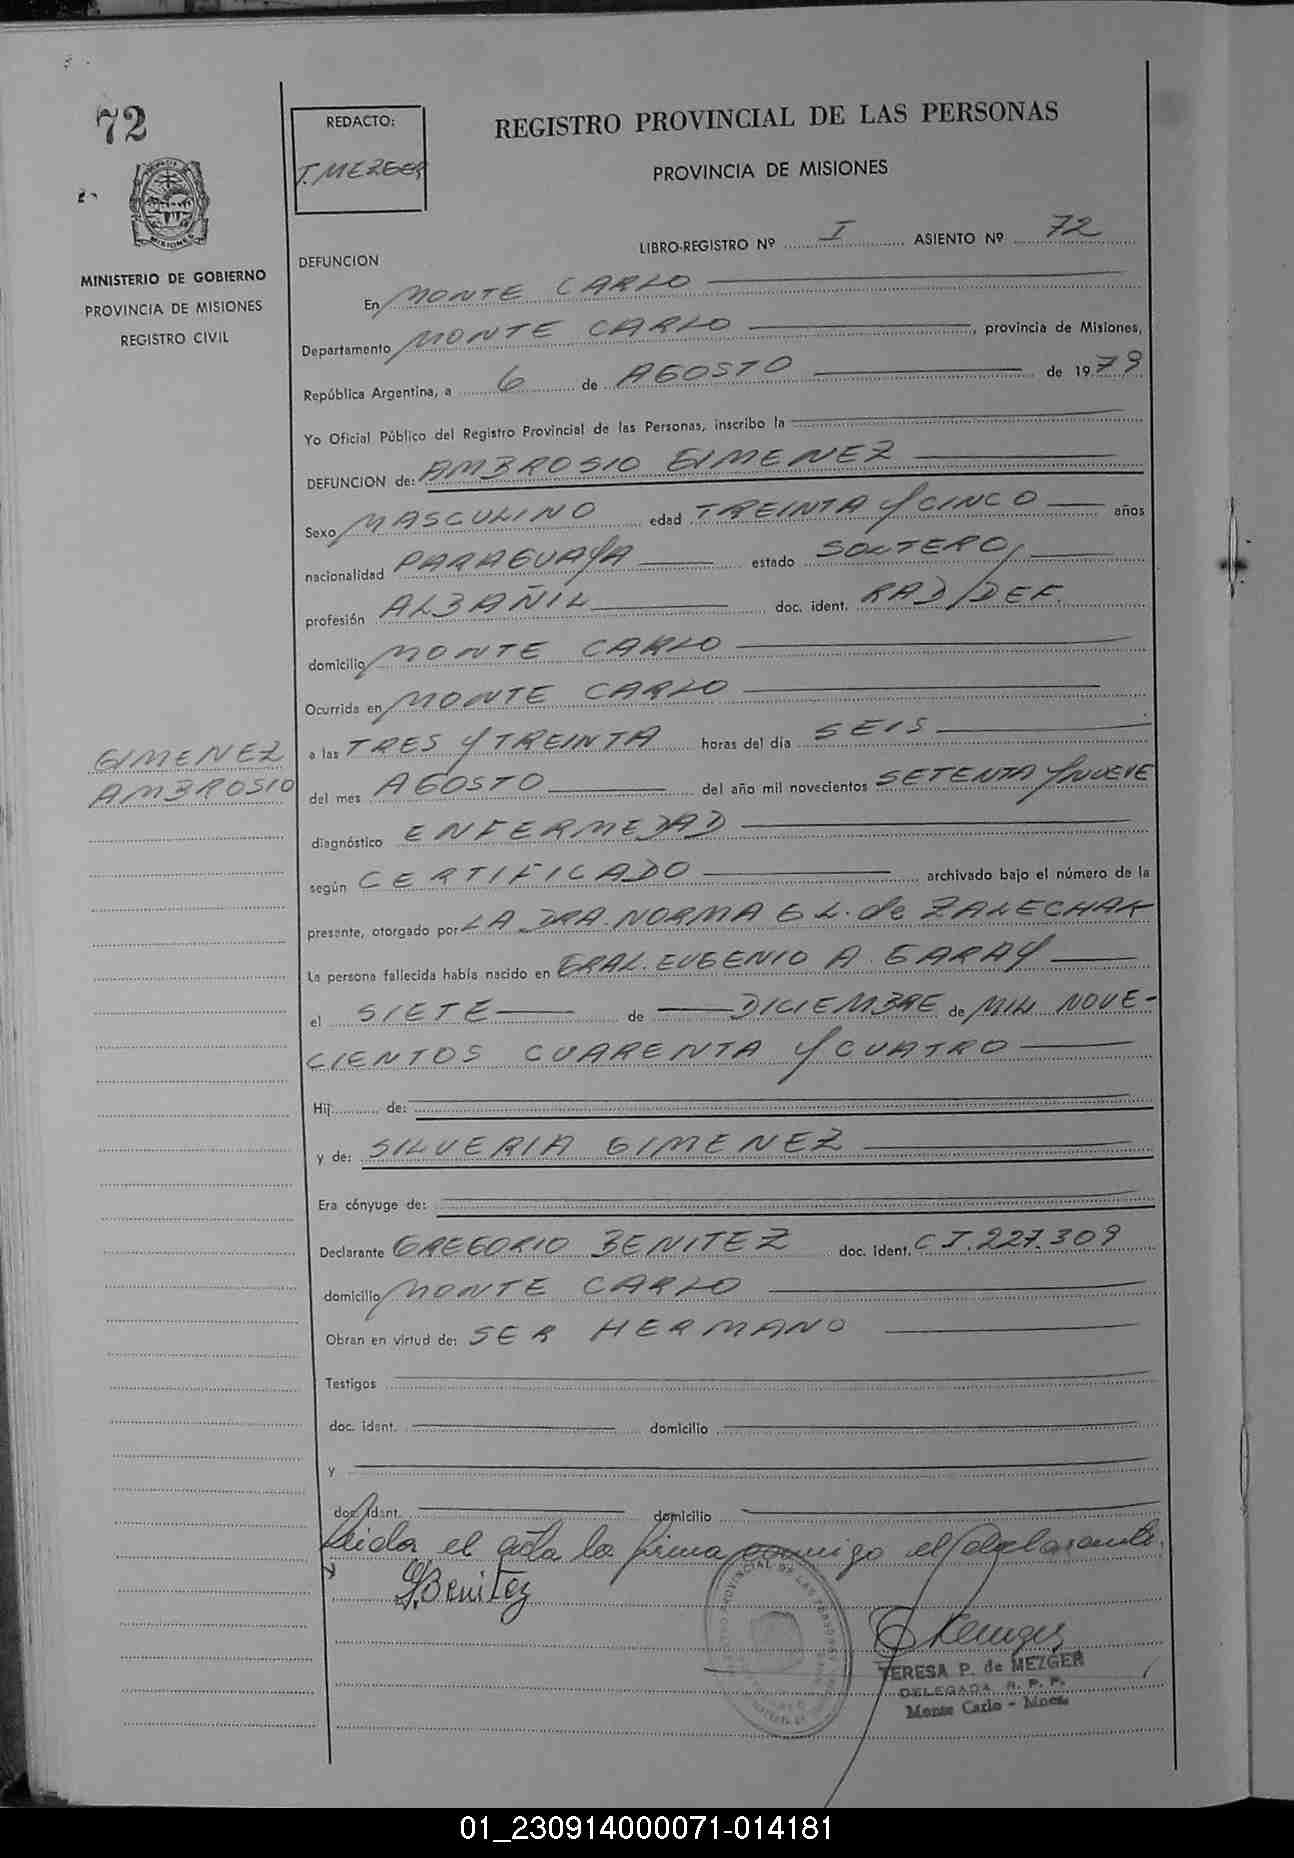 72
REDACTO:
T. MEZGER
REGISTRO PROVINCIAL DE LAS PERSONAS
PROVINCIA DE MISIONES
MISIONES
MINISTERIO DE GOBIERNO
PROVINCIA DE MISIONES
REGISTRO CIVIL
LIBRO-REGISTRO Nº I ASIENTO Nº 72
DEFUNCION
En MONTE CARLO
Departamento MONTE CARLO, provincia de Misiones,
República Argentina, a 6 de AGOSTO de 1979
Yo Oficial Público del Registro Provincial de las Personas, inscribo la
DEFUNCION de: AMBROSIO GIMENEZ
Sexo MASCULINO edad TREINTA Y CINCO años
nacionalidad PARAGUAYA estado SOLTERO,
profesión ALBAÑIL doc. ident. RAD/DEF.
domicilio MONTE CARLO
Ocurrida en MONTE CARLO
GIMENEZ
AMBROSIO
a las TRES Y TREINTA horas del día SEIS
del mes AGOSTO del año mil novecientos SETENTA Y NUEVE
diagnóstico ENFERMEDAD
según CERTIFICADO archivado bajo el número de la
presente, otorgado por LA DRA. NORMA G L. de ZALECHAK
La persona fallecida había nacido en GRAL. EUGENIO A. GARAY
el SIETE de DICIEMBRE de MIL NOVE-
CIENTOS CUARENTA Y CUATRO
Hij de:
y de: SILVERIA GIMENEZ
Era cónyuge de:
Declarante GREGORIO BENITEZ doc. ident. C I. 227.309
domicilio MONTE CARLO
Obran en virtud de: SER HERMANO
Testigos
doc. ident. domicilio
y
doc. ident. domicilio
Leida el acta la firma conmigo el declarante.
G. Benitez
TERESA P. de MEZGER
DELEGADA R. P. P.
Monte Carlo - Mnes.
01_230914000071-014181